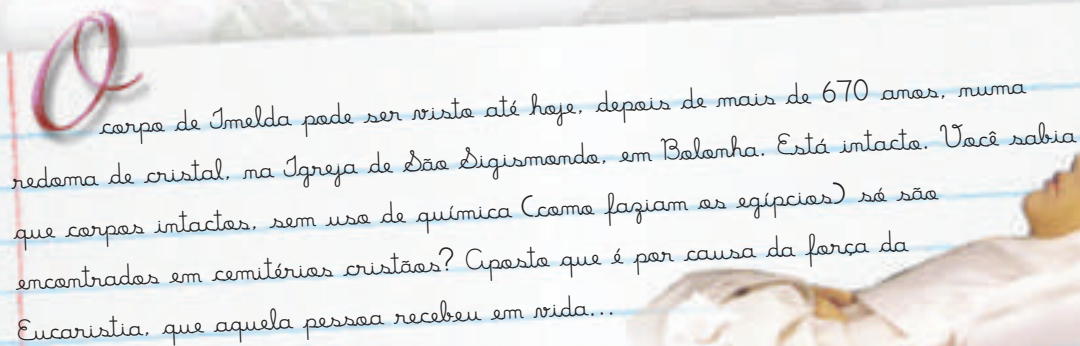 O corpo de Imelda pode ser visto até hoje, depois de mais de 670 anos, numa
redoma de cristal, na Igreja de São Sigismondo, em Bolonha. Está intacto. Você sabia
que corpos intactos, sem uso de química (como faziam os egípcios) só são
encontrados em cemitérios cristãos? Aposto que é por causa da força da
Eucaristia, que aquela pessoa recebeu em vida...